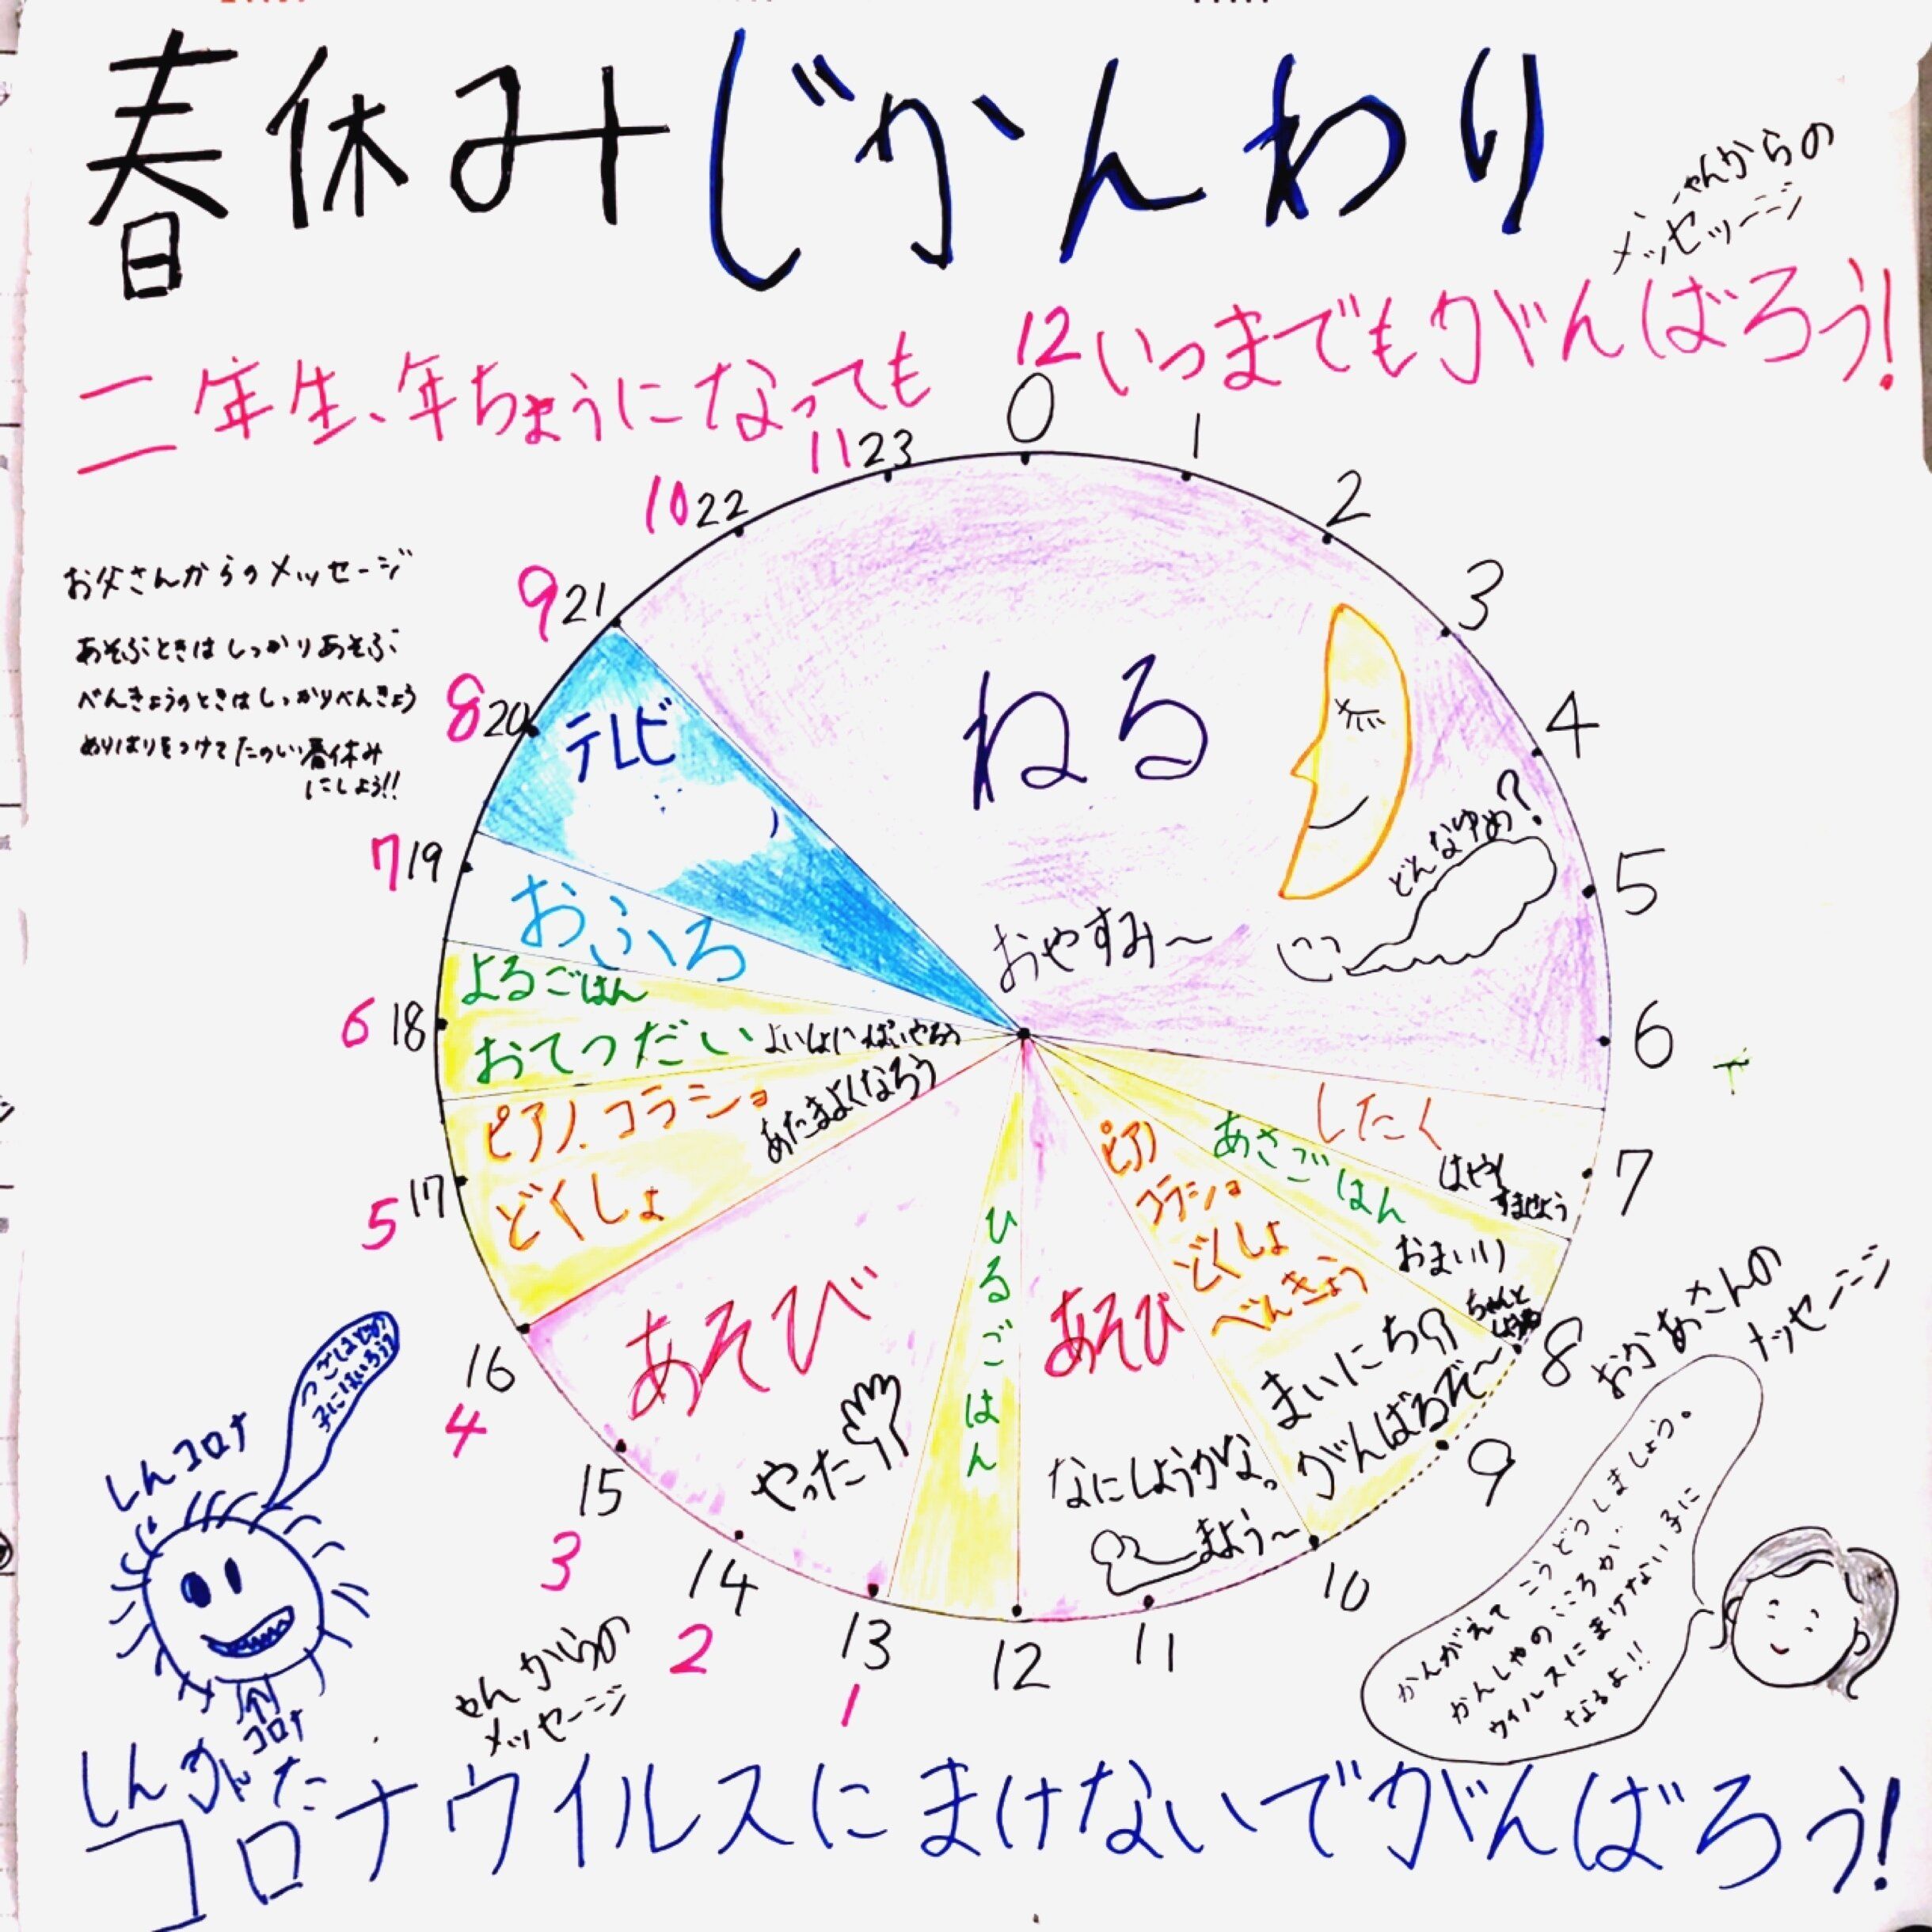 春休みじかんわり
ゃんからの
メッセッージ
二年生、年ちょうになっても
いつまでもがんばろう!
12
0
1
2
3
4
5
6
7
8
9
10
11
12
13
1
14
2
15
3
16
4
17
5
18
6
19
7
20
8
21
9
22
10
23
11
お父さんからのメッセージ
あそぶときはしっかりあそぶ
べんきょうのときはしっかりべんきょう
めりはりをつけてたのしい春休み
にしよう!!
ねる
どんなゆめ?
おやすみ〜
したく
はやく
すませよう
あさごはん
おまいり
ちゃんと
ピアノ
コラショ
どくしょ
べんきょう
まいにち
がんばるぞ〜
あそび
なにしようかな。
まよう〜
ひるごはん
あそび
やったー
ピアノ.コラショ
どくしょ
あたまよくなろう
よるごはん
おてつだい
おふろ
テレビ
おかあさんの
メッセージ
かんがえてこうどうしましょう。
かんしゃのこころが、
ウイルスにまけない子に
なるよ!!
しんコロナ
コロナ
ゃんからの
メッセージ
しんがた
コロナウイルスにまけないでがんばろう!